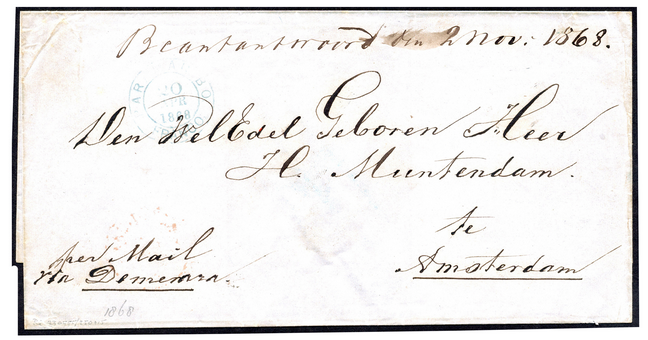 Beantantwoord den 2 Nov: 1868.
PAR
20
8
1868
Den WelEdel Geboren Heer
H. Muntendam.
te
Amsterdam
per Mail
via Demerara.
1868